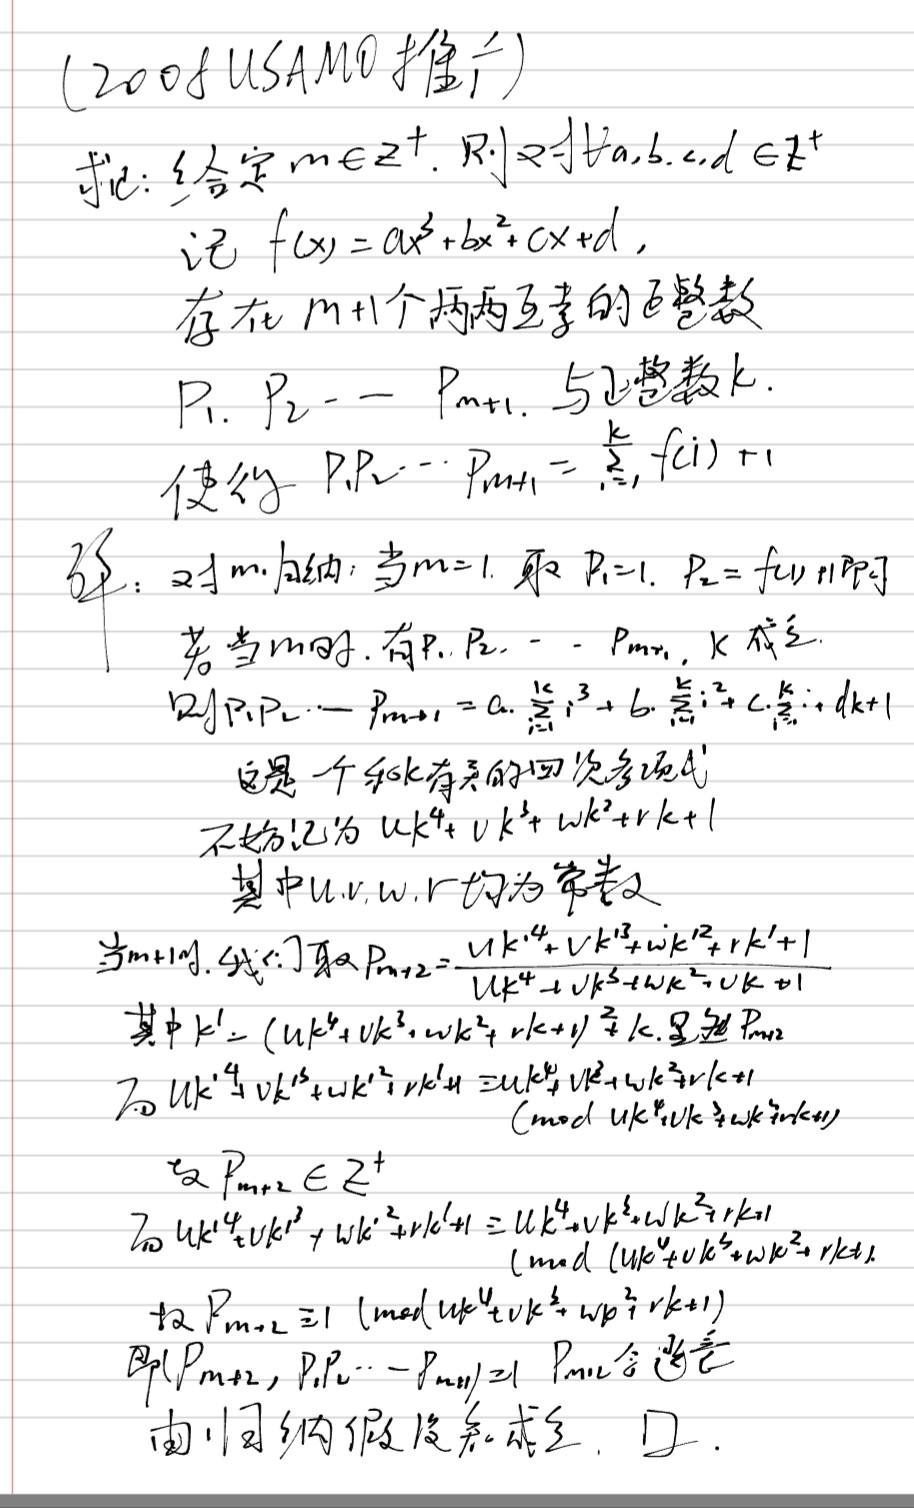 (2008 USAMO 推广)
求证: 给定 m∈Z⁺. 则对∀a,b,c,d∈Z⁺
记 f(x)=ax³+bx²+cx+d,
存在 m+1个两两互素的正整数
P₁. P₂ -- P_{m+1}. 与正整数k.
使得 P₁P₂…P_{m+1} = \sum_{i=1}^{k} f(i)+1
证: 对m归纳: 当m=1. 取 P₁=1. P₂=f(1)+1即可
若当m时. 有P₁. P₂. -- P_{m+1}, k 成立.
则P₁P₂…P_{m+1} = a·\sum_{i=1}^{k} i³ + b·\sum_{i=1}^{k} i² + c·\sum_{i=1}^{k} i + dk+1
这是一个和k有关的四次多项式
不妨记为 uk⁴+vk³+wk²+rk+1
其中u.v.w.r均为常数
当m+1时. 我们取P_{m+2} = \frac{uk'⁴+vk'³+wk'²+rk'+1}{uk⁴+vk³+wk²+vk+1}
其中k'=(uk⁴+vk³+wk²+rk+1)²+k. 显然 P_{m+2}
而 uk'⁴+vk'³+wk'²+rk'+1 ≡ uk⁴+vk³+wk²+rk+1
(mod uk⁴+vk³+wk²+rk+1)
故 P_{m+2}∈Z⁺
而 uk'⁴+vk'³+wk'²+rk'+1 ≡ uk⁴+vk³+wk²+rk+1
(mod (uk⁴+vk³+wk²+rk+1
故 P_{m+2} ≡1 (mod uk⁴+vk³+wk²+rk+1)
即(P_{m+2}, P₁P₂…P_{m+1})=1 P_{m+2}合题意
由归纳假设知成立. □.